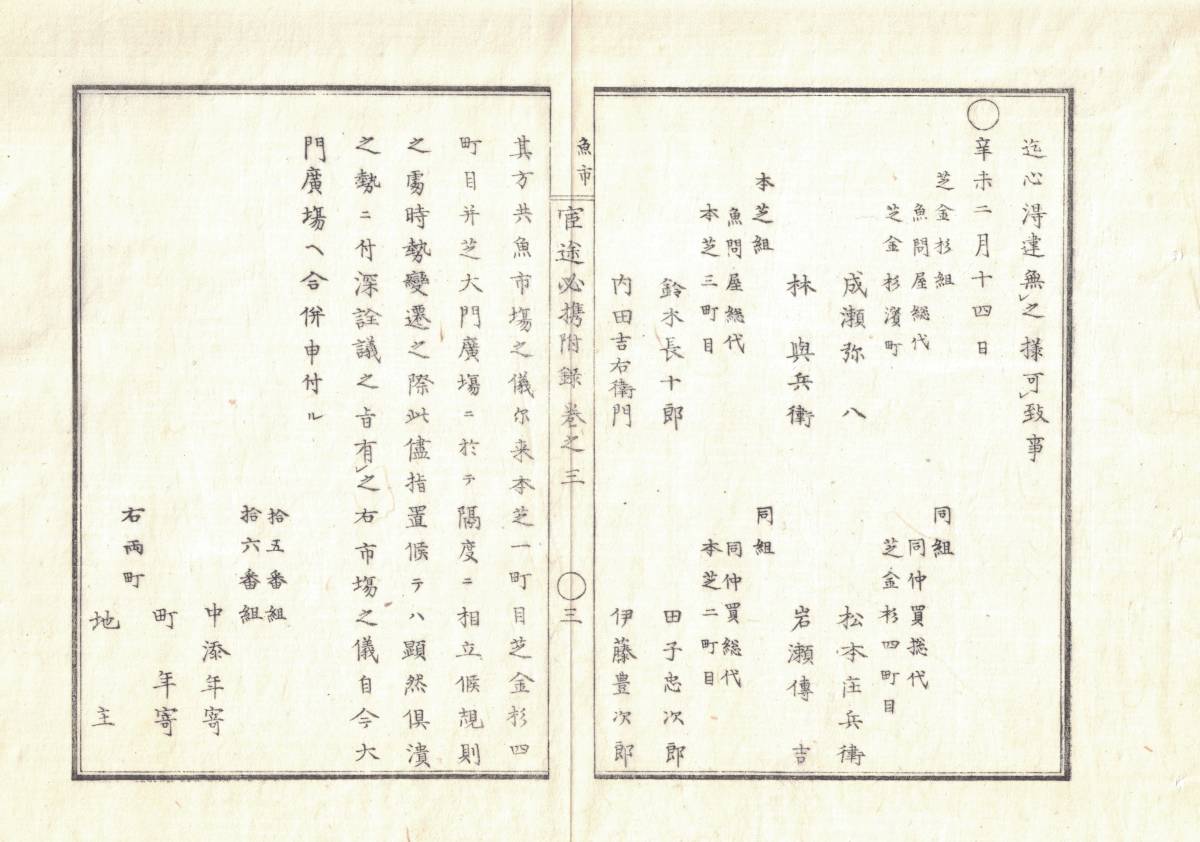 迄心得違無之様可致事
○辛未二月十四日
芝金杉組
魚問屋総代
芝金杉濱町
成瀬弥八
林與兵衛
同組
同仲買総代
芝金杉四町目
松本庄兵衛
岩瀬傳吉
本芝組
魚問屋総代
本芝三町目
鈴木長十郎
内田吉右衛門
同組
同仲買総代
本芝二町目
田子忠次郎
伊藤豊次郎
魚市 宦途必携附録巻之三 ○三
其方共魚市塲之儀尓来本芝一町目芝金杉四
町目并芝大門廣塲ニ於テ隔度ニ相立候規則
之處時勢變遷之際此儘指置候テハ顕然倶潰
之勢ニ付深詮議之旨有之右市塲之儀自今大
門廣塲ヘ合併申付ル
拾五番組
拾六番組
中添年寄
町年寄
右両町
地主